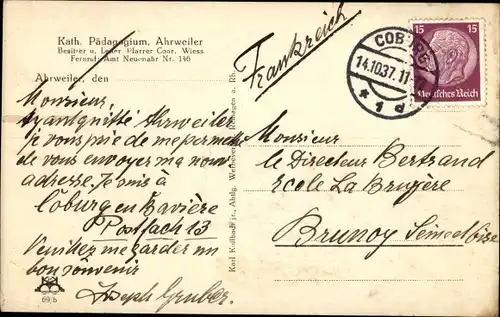 Kath. Pädagogium, Ahrweiler
Besitzer u. Leiter Pfarrer Conr. Wiess
Fernruf: Amt Neuenahr Nr. 146
Ahrweiler, den
Monsieur,
Ayant quitté Ahrweiler
je vous prie de me permettre
de vous envoyer ma nouv.
adresse. Je suis à
Cöburg en Bavière
Postfach 13
Veuillez me garder un
bon souvenir
Joseph Gruber.
69/b
Karl Kollbach jr., Abtlg. Werbe, Remagen a. Rh.
Frankreich
COBURG
14.10.37. 11-
* 1 d
15 15
Deutsches Reich
Monsieur
le Directeur Bertrand
Ecole La Bruyère
Brunoy Seine et Oise